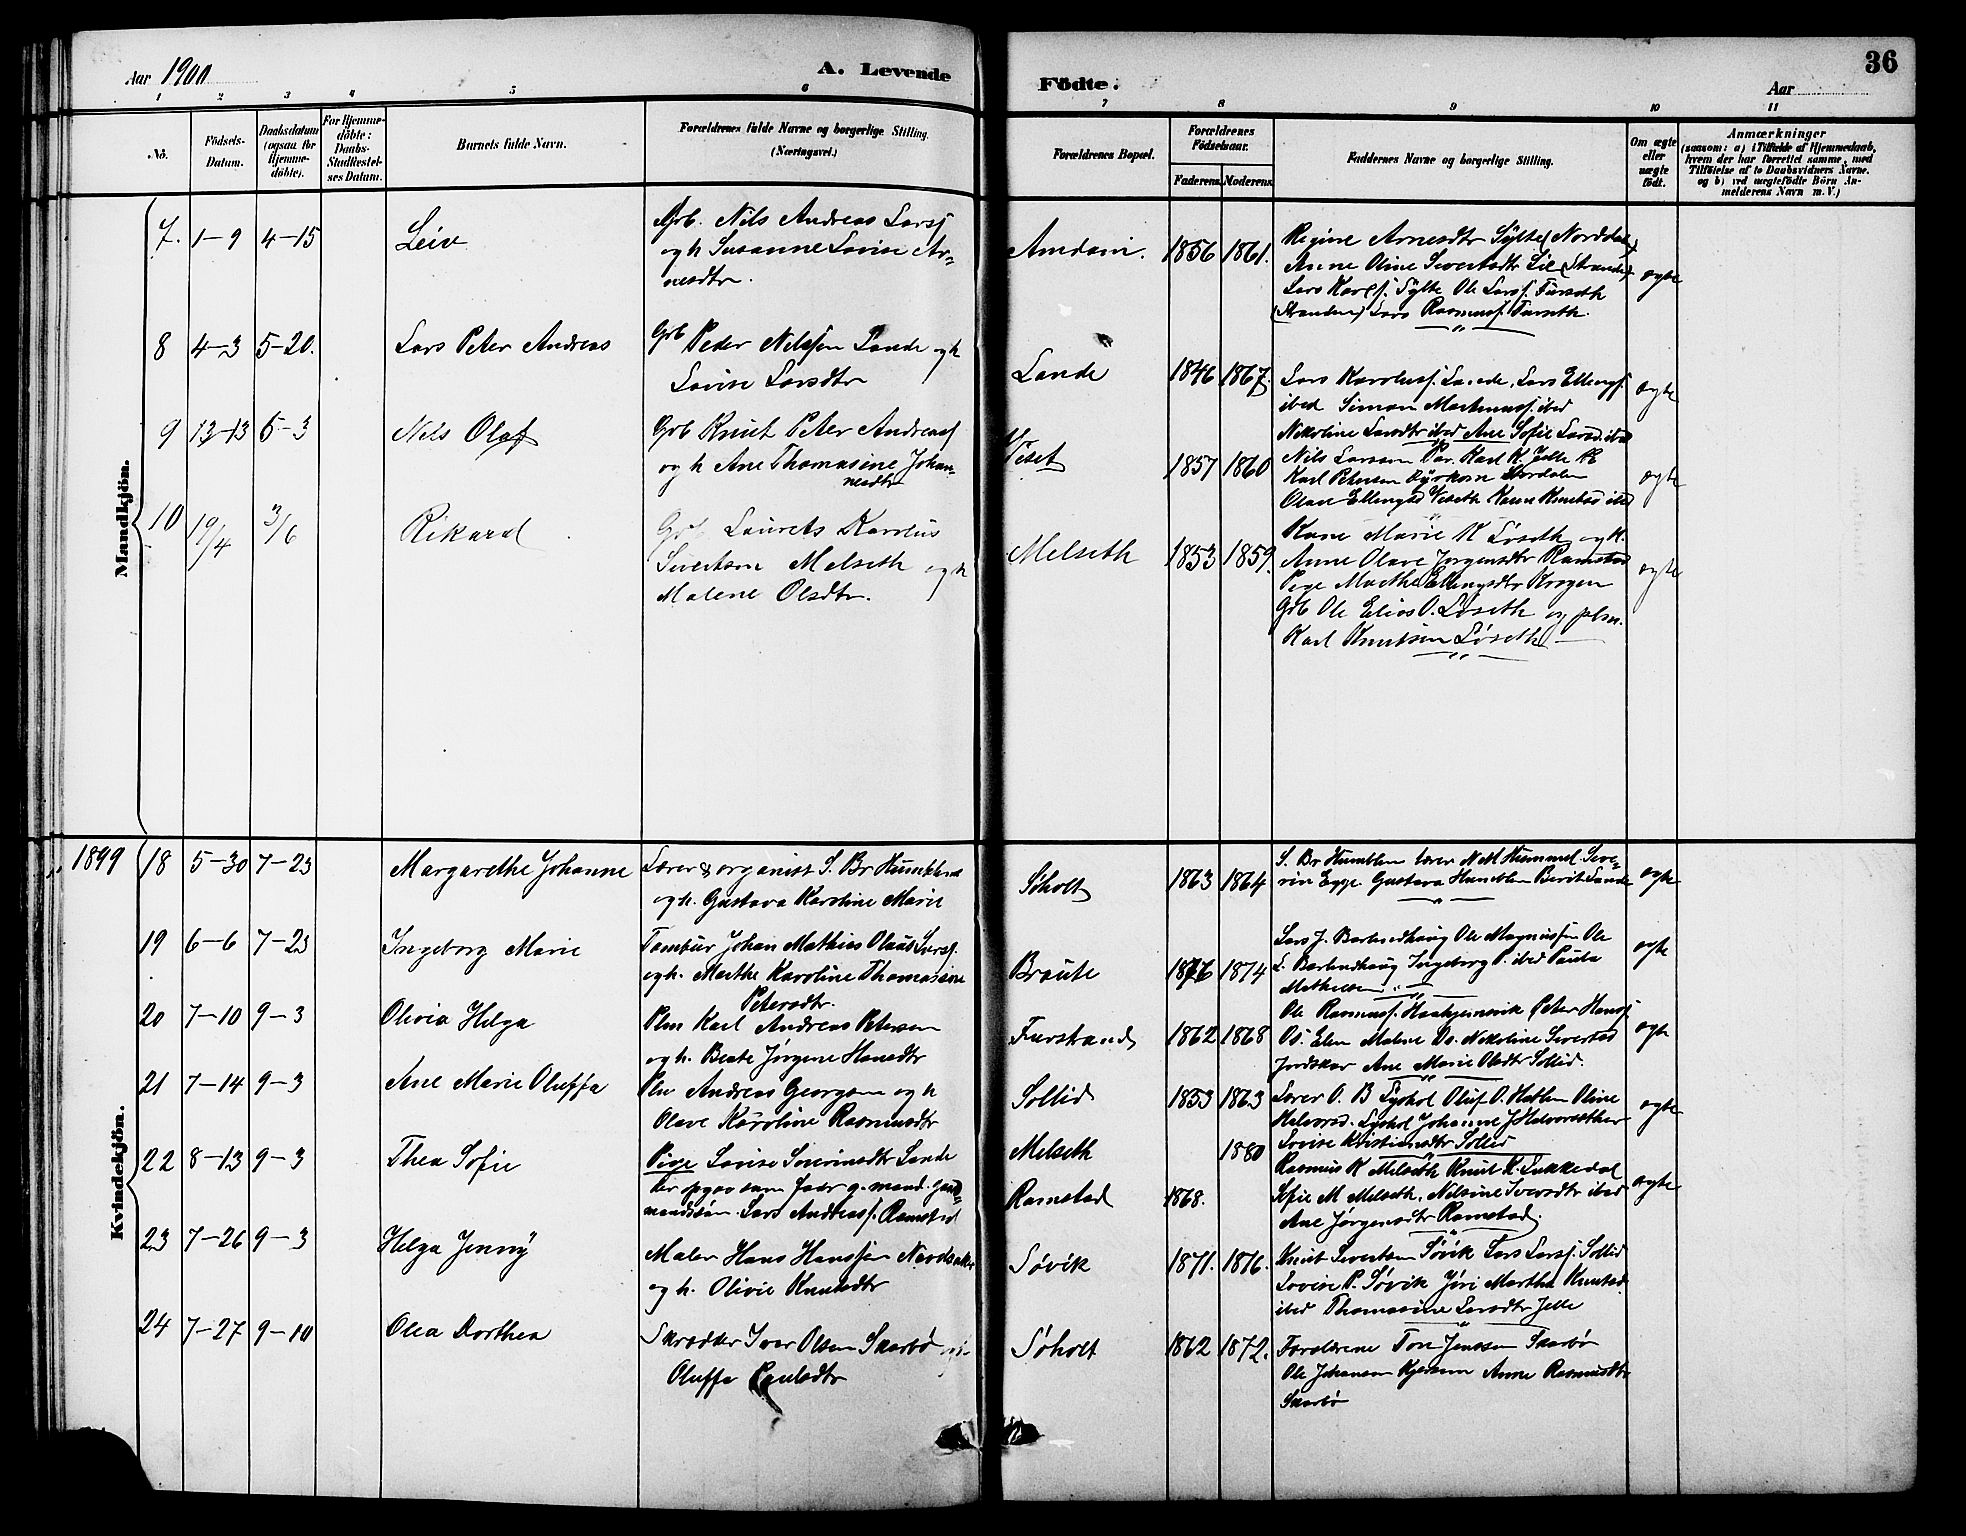 Aar 1900
A. Levende
Födte.
Aar
36
1 2 3 4 5 6 7 8 9 10 11
Nö.
Födsels-
Datum.
Daabsdatum
(ogsaa for
Hjemme-
döbte).
For Hjemme-
döbte:
Daabs-
Stadfæstel-
ses Datum.
Barnets fulde Navn.
Forældrenes fulde Navne og borgerlige Stilling.
(Næringsvei.)
Forældrenes Bopæl.
Forældrenes
Födselsaar.
Faderens.
Moderens.
Faddernes Navne og borgerlige Stilling.
Om ægte
eller
uægte
födt.
Anmærkninger
(saasom: a) i Tilfælde af Hjemmedaab,
hvem der har forrettet samme, med
Tilföielse af to Daabsvidners Navne.
og b) ved uægtefödte Börn An-
melderens Navn m. V.)
Mandkjön.
7. 1-9 4-15 Leiv
Grb. Nils Andreas Larsf
og h Susanne Lovise Ar-
nesdtr.
Amdam. 1856 1861.
Regine Arnesdtr Sylte (Norddal)
Anne Oline Sivertsdtr Lie (Stranden)
Lars Karlsf. Sylte Ole Larsf. Furseth
(Stranden) Lars Rasmusf. Furseth.
ægte
8 4-3 5-20. Lars Peter Andreas
Grb Peder Nilsen Lande og h
Lovise Larsdtr
Lande 1846 1867.
Lars Karolusf. Lande, Lars Ellingsf.
ibid Simon Martinusf. ibid
Nikoline Larsdtr ibid Ane Sofie Larsd. ibid
ægte
9 13-13 6-3 Nils Olaf
Grb Knut Peter Andreasf
og h Ane Thomasine Johan-
nesdtr
Viset 1857 1860
Nils Larsen Par. Karl K. Jelle
Karl Petersen Dyrkorn Stordalen
Olave Ellingsd Viseth Karen Knutsd ibid
ægte
10 19/4 3/6 Rikard
Grb Laurets Karolus
Sivertsen Melseth og h
Malene Olsdtr.
Melseth 1853 1859.
Kone Marie K Løseth og k.
Anne Olave Jørgensdtr Ramstad
Pige Marthe Ellingsdtr Krogen
Grb Ole Elias O. Løseth og plm.
Karl Knutsen Løseth
ægte
Kvindekjön.
1899 18 5-30 7-23 Margarethe Johanne
Lærer & organist S. Br Humblen
og h. Gustava Karoline Marie
Søholt 1863 1864
S. Br Humblen lærer N M Hummel. Seve-
rin Egge Gustava Humblen Berit Lande
ægte
19 6-6 7-23 Ingeborg Marie
Tambur Johan Mathias Olaus Larsf.
og h. Marthe Karoline Thomasine
Petersdtr.
Braute 1876 1874
Lars J. Barlindhaug Ole Magnussen Ole
L. Barlindhaug Ingeborg P. ibid Paula
Mathisen
ægte
20 7-10 9-3 Olivia Helga
Plm Karl Andreas Petersen
og h. Beate Jørgine Hansdtr
Furstrand 1862 1868
Ole Rasmusf. Haahjemsvik Peter Hansf
Ds. Elen Malene Ds. Nikoline Sivertsd
Jordskar Ane Marie Olsdtr Sollid.
ægte
21 7-14 9-3 Ane Marie Oluffa
Plm Andreas Georgsen og h
Olave Karoline Rasmusdtr
Sollid 1853 1863
Lærer O. B Lyshol Oluf O. Hatlen Oline
Halvorsd. Lyshol Johanne J Halvorsdther
Lovise Kristiansdtr Sollid
ægte
22 8-13 9-3 Thea Sofie
Pige Lovise Severinsdtr Lande
der opgav som fader g. mand. gaard-
mandssøn Lars Andreasf. Ramstad
Melseth 1880
Ramstad 1868.
Rasmus K Melseth Knut K. Lukkedal
Sofie M Melseth, Nilsine Iversdtr ibid
Ane Jørgensdtr Ramstad.
uægte
23 7-26 9-3 Helga Jenny
Maler Hans Hanssen
og h. Olivie Knutsdtr
Søvik 1871. 1876.
Knut Sivertsen Søvik Lars Larsf. Sollid
Lovise P. Søvik Jøri Martha Knutsd.
ibid Thomasine Larsdtr Jelle
24 7-27 9-10 Olea Dorthea
Skrædder Iver Olsen Skarbø og h
Oluffa Paulsdtr
Søholt 1862 1872.
Forældrene Tore Jenssen Skarbø
Ole Johansen Kjersem Anne Rasmusdtr
Skarbø